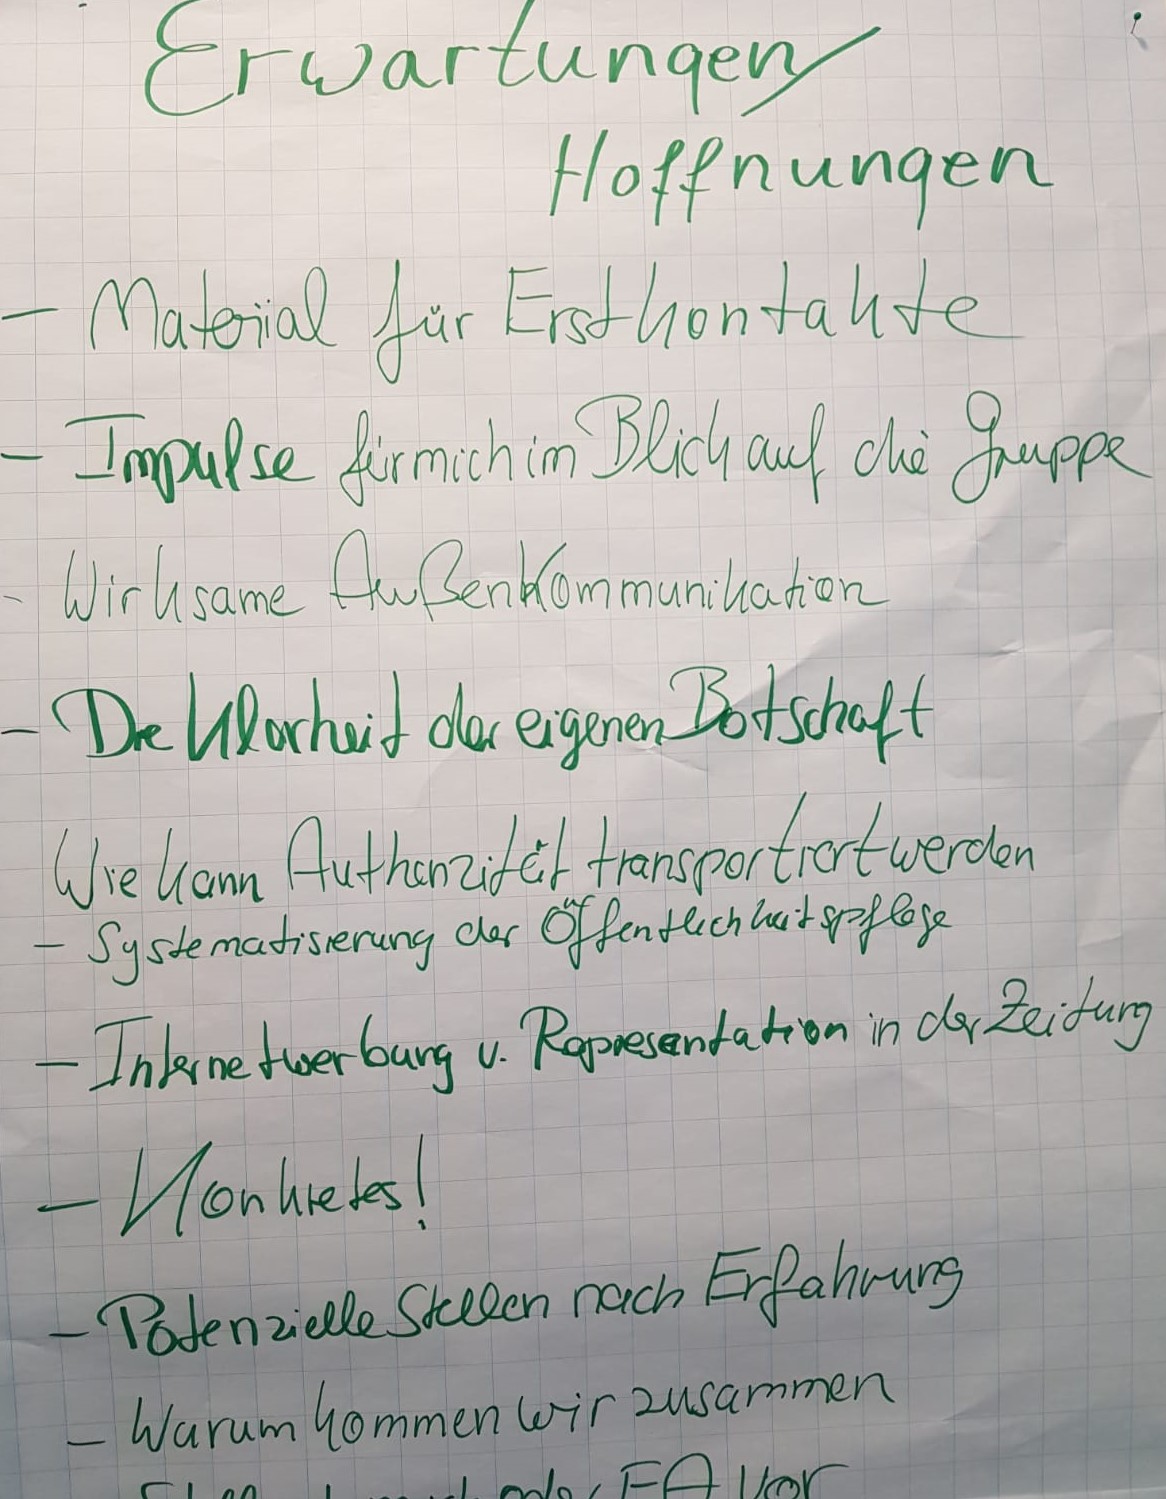 Erwartungen/
Hoffnungen
- Material für Erstkontakte
- Impulse für mich im Blick auf die Gruppe
- Wirksame Außenkommunikation
- Die Klarheit der eigenen Botschaft
Wie kann Authenzität transportiert werden
- Systematisierung der Öffentlichkeitspflege
- Internetwerbung u. Representation in der Zeitung
- Konkretes!
- Potenzielle Stellen nach Erfahrung
- Warum kommen wir zusammen
FA vor